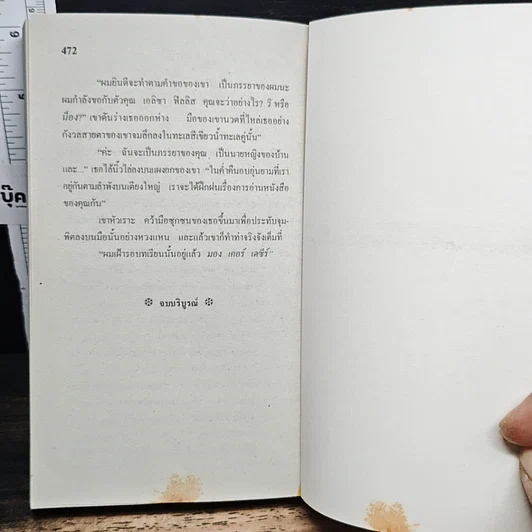 472
“ผมยินดีจะทำตามคำขอของเขา เป็นภรรยาของผมนะ
ผมกำลังขอกับตัวคุณ เอลิซา ฟิลลิส คุณจะว่าอย่างไร? วี หรือ
น็อง?” เขาดันร่างเธอออกห่าง มือของเขานวดที่ไหล่เธออย่าง
กังวลสายตาของเขาจมลึกลงในทะเลสีเขียวน้ำทะเลคู่นั้น”
“ค่ะ ฉันจะเป็นภรรยาของคุณ เป็นนายหญิงของบ้าน
และ...” เธอไล้นิ้วไล่ลงบนแผงอกของเขา “ในค่ำคืนอบอุ่นยามที่เรา
อยู่กันตามลำพังบนเตียงใหญ่ เราจะได้ฝึกฝนเรื่องการอ่านหนังสือ
ของคุณกัน”
เขาหัวเราะ คว้ามือซุกซนของเธอขึ้นมาเพื่อประทับจุม-
พิตลงบนมือนั้นอย่างหวงแหน และแล้วเขาก็ทำท่าจริงจังเต็มที่
“ผมเฝ้ารอบทเรียนนั้นอยู่แล้ว มอง เคอร์ เดซีร์”
❊ จบบริบูรณ์ ❊